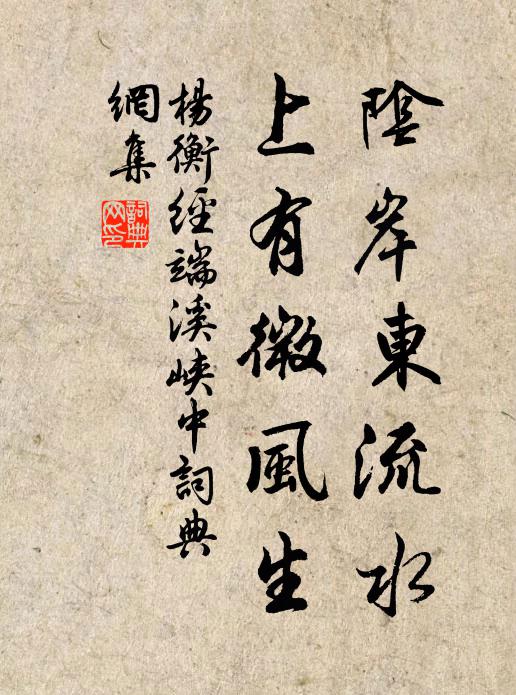 陰岸東流水
上有微風生
楊衡經端溪峽中詞典
網集
詞典
网印